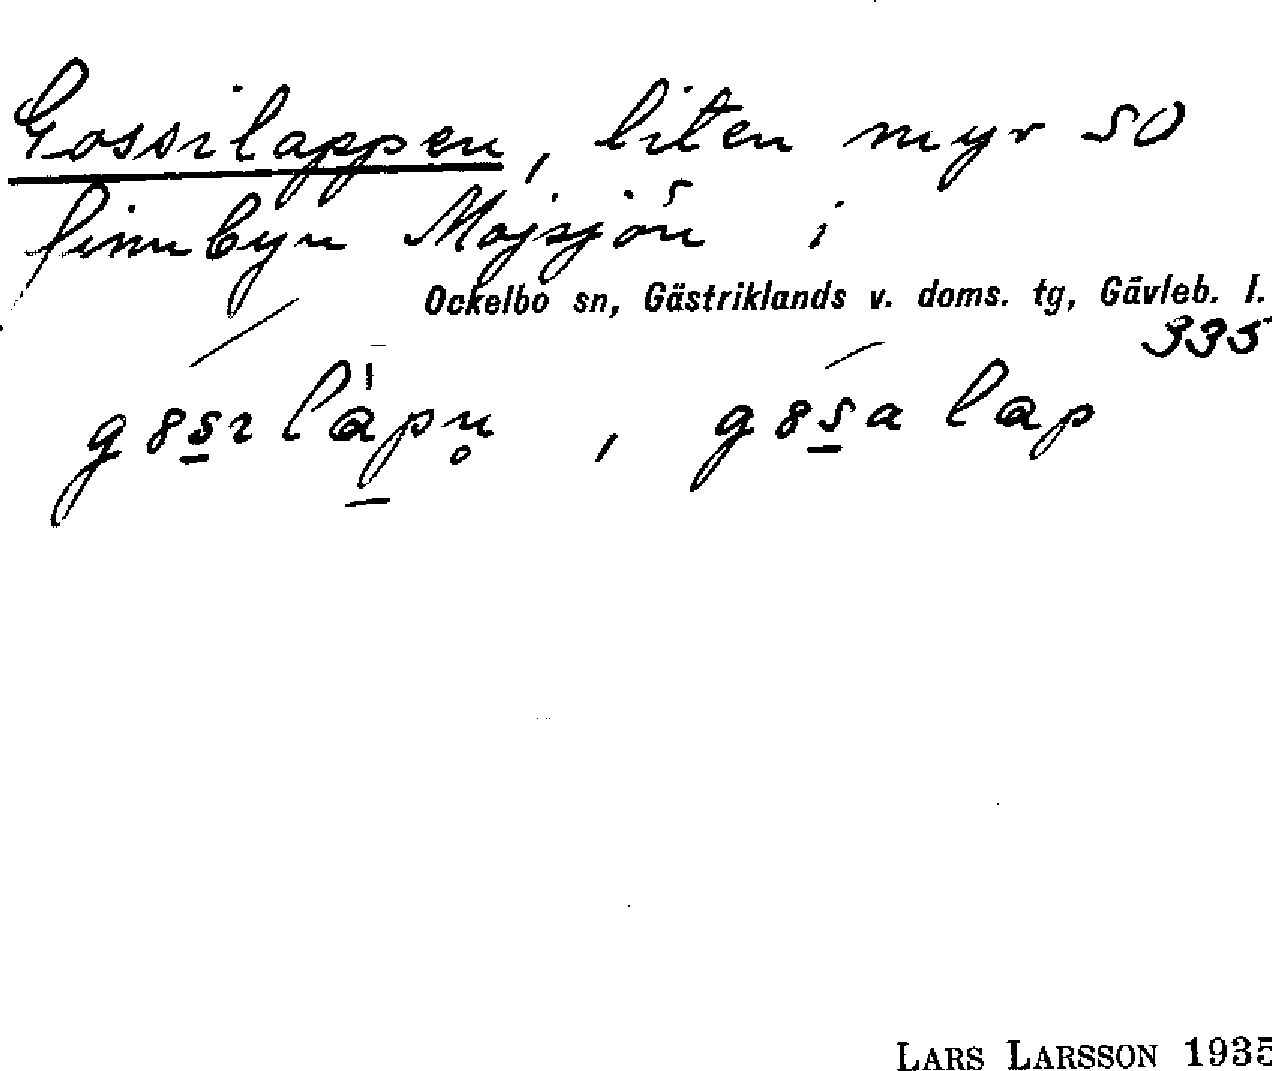 Gossilappen, liten myr SO
finnbyn Mojsjön i
Ockelbo sn, Gästriklands v. doms. tg, Gävleb. l.
335
g8sılàpn̥, g8sa lap
LARS LARSSON 1935